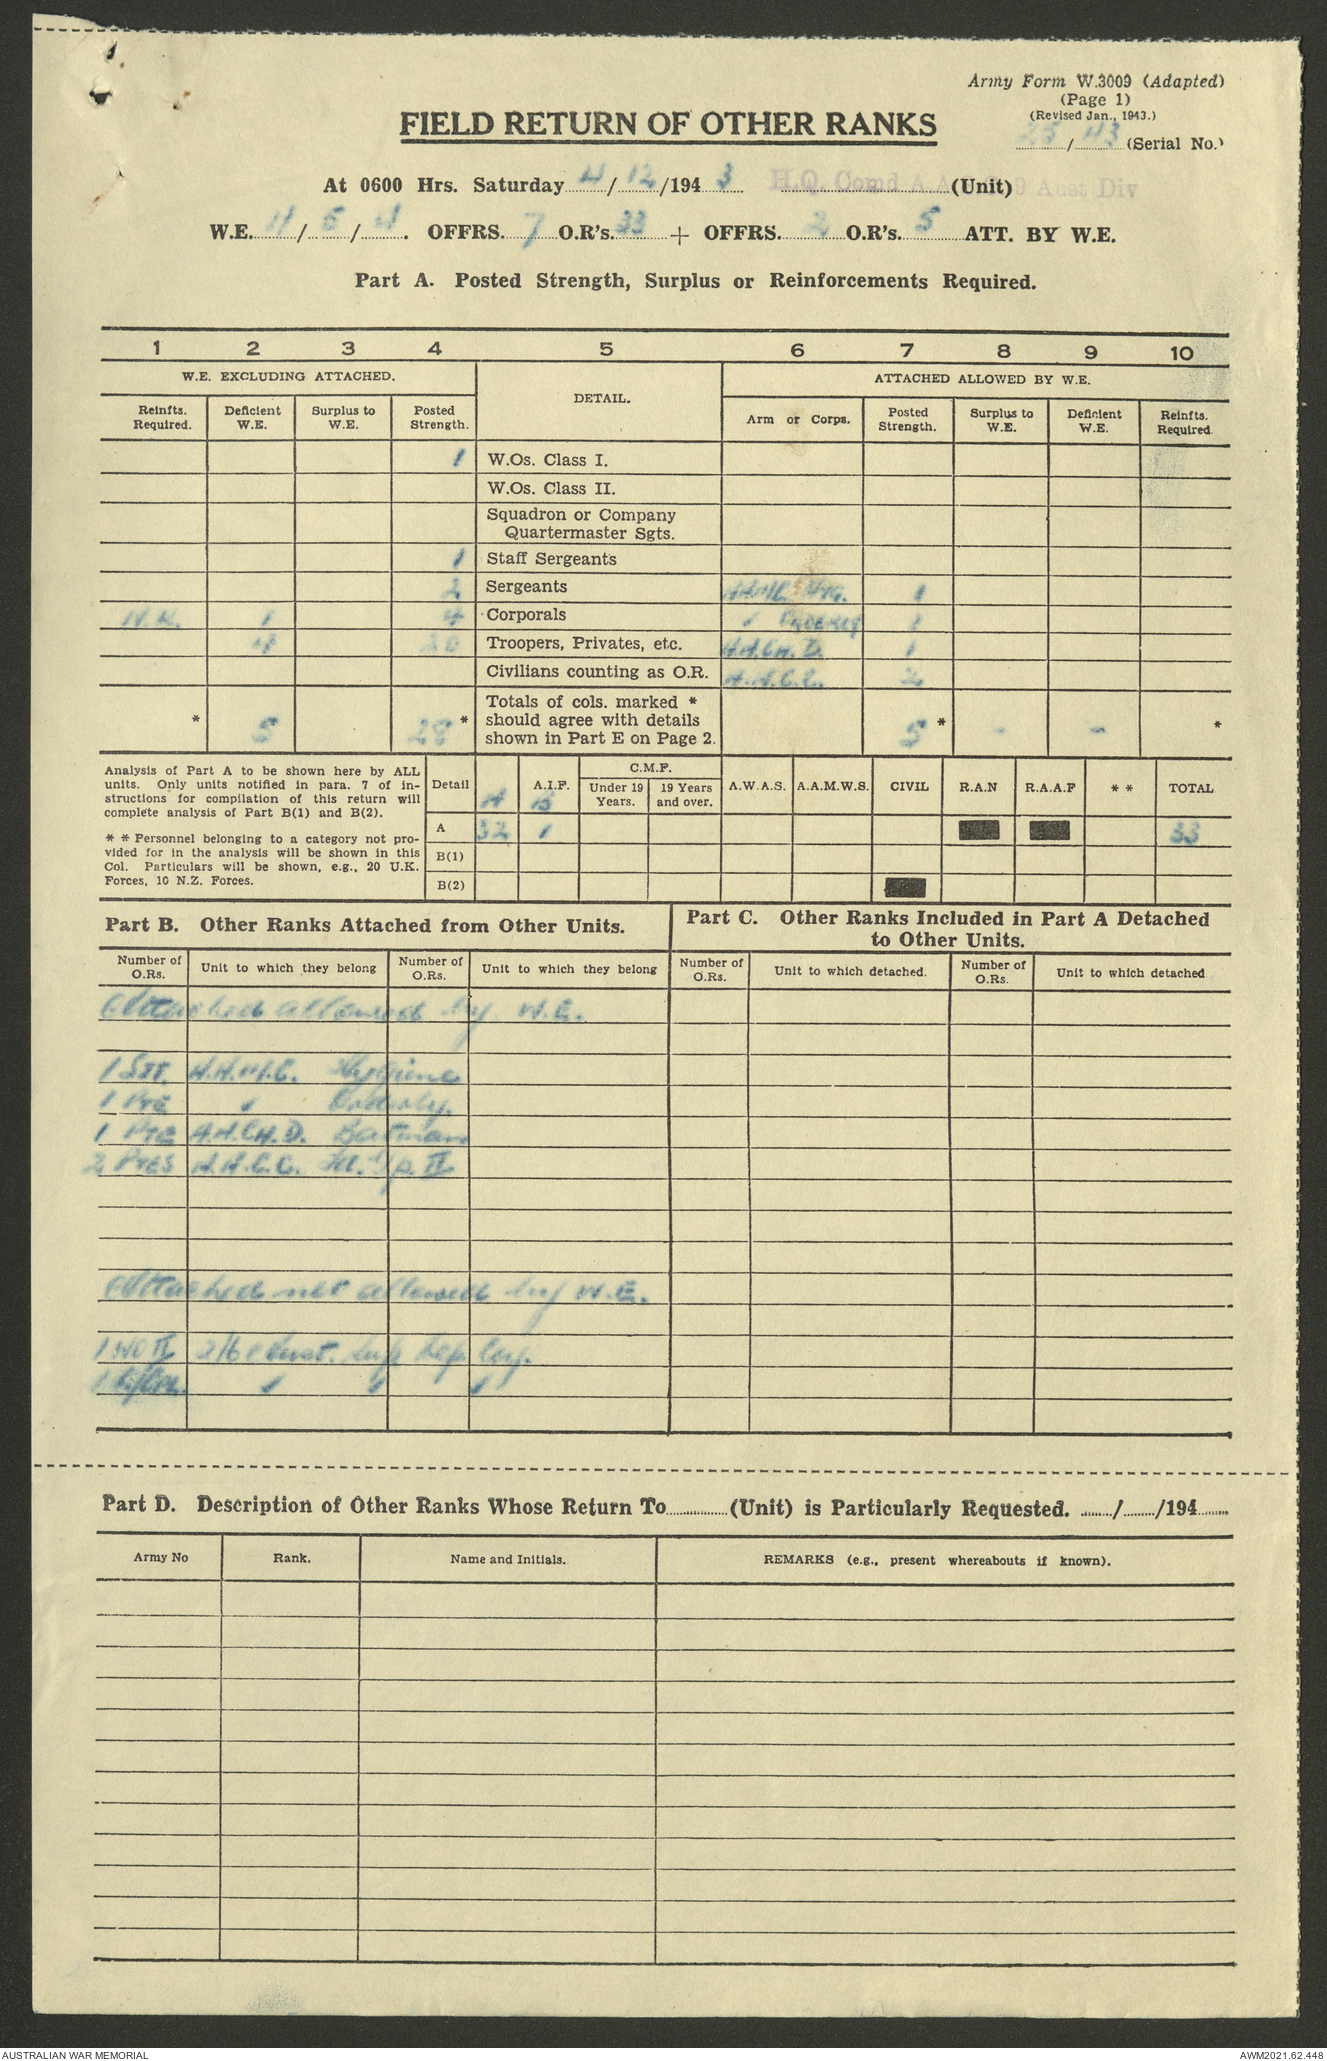 Army Form W.3009 (Adapted)
(Page 1)
(Revised Jan., 1943.)
FIELD RETURN OF OTHER RANKS
25/43 (Serial No.)
At 0600 Hrs. Saturday 4/12/1943 H.Q. Comd A.A.S.C. 9 Aust Div (Unit)
W.E. 11/5/4. OFFRS. 7 O.R's. 33 + OFFRS. 2 O.R's. 5 ATT. BY W.E.
Part A. Posted Strength, Surplus or Reinforcements Required.
1 2 3 4 5 6 7 8 9 10
W.E. EXCLUDING ATTACHED. DETAIL. ATTACHED ALLOWED BY W.E.
Reinfts. Required. Deficient W.E. Surplus to W.E. Posted Strength. Arm or Corps. Posted Strength. Surplus to W.E. Deficient W.E. Reinfts. Required.
1 W.Os. Class I.
W.Os. Class II.
Squadron or Company
Quartermaster Sgts.
1 Staff Sergeants
2 Sergeants A.A.M.C. Hyg. 1
N.R. 1 4 Corporals ✓ Orderly 1
4 20 Troopers, Privates, etc. A.A.C.H.D. 1
Civilians counting as O.R. A.A.C.C. 2
Totals of cols. marked *
should agree with details
shown in Part E on Page 2.
* 5 28 * 5 * - - *
Analysis of Part A to be shown here by ALL
units. Only units notified in para. 7 of in-
structions for compilation of this return will
complete analysis of Part B(1) and B(2).
* * Personnel belonging to a category not pro-
vided for in the analysis will be shown in this
Col. Particulars will be shown, e.g., 20 U.K.
Forces, 10 N.Z. Forces.
Detail A A.I.F. B C.M.F. Under 19 Years. 19 Years and over. A.W.A.S. A.A.M.W.S. CIVIL R.A.N R.A.A.F * * TOTAL
A 32 1 33
B(1)
B(2)
Part B. Other Ranks Attached from Other Units.
Part C. Other Ranks Included in Part A Detached
to Other Units.
Number of O.Rs. Unit to which they belong Number of O.Rs. Unit to which they belong Number of O.Rs. Unit to which detached. Number of O.Rs. Unit to which detached
Attached allowed by W.E.
1 SJT. A.A.M.C. Hygiene
1 PTE ✓ Orderly.
1 PTE A.A.C.H.D. Batman
2 PTES A.A.C.C. II
Attached not allowed by W.E.
1 WO II 2/6 Aust. Sup Dep Coy.
1 L/Cpl. ✓ ✓ ✓
Part D. Description of Other Ranks Whose Return To.........(Unit) is Particularly Requested. ....../....../194......
Army No Rank. Name and Initials. REMARKS (e.g., present whereabouts if known).
AUSTRALIAN WAR MEMORIAL
AWM2021.62.448